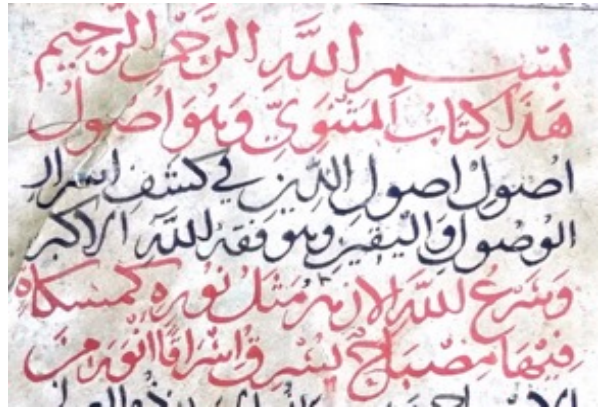 بسم الله الرحمن الرحيم
هَذَا كِتَابُ الْمَثْنَوِيِّ وَهُوَ اُصُولُ
اصُولِ اصُولِ الدِّينِ في كشفِ اسرار
الوُصُولِ وَالْيَقِينِ وهو فقهُ للّٰه الاكبر
وَشَرْعُ للّٰه الازهر مَثَلُ نُورِه كمشكاة
فِيْهَا مِصْبَاحٌ يُشْرِقُ اِشْرَاقًا اَنْوَرَ مِنَ